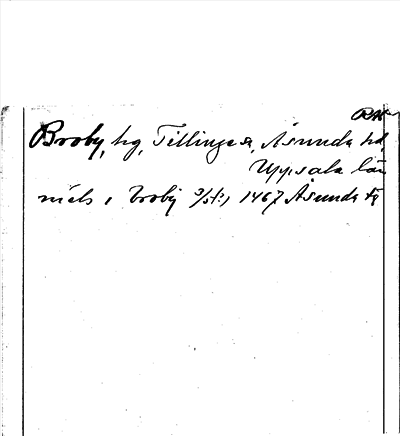 Broby, hg, Tillinge s, Åsunda hd,
Uppsala län
niels i broby 1467 Åsunda